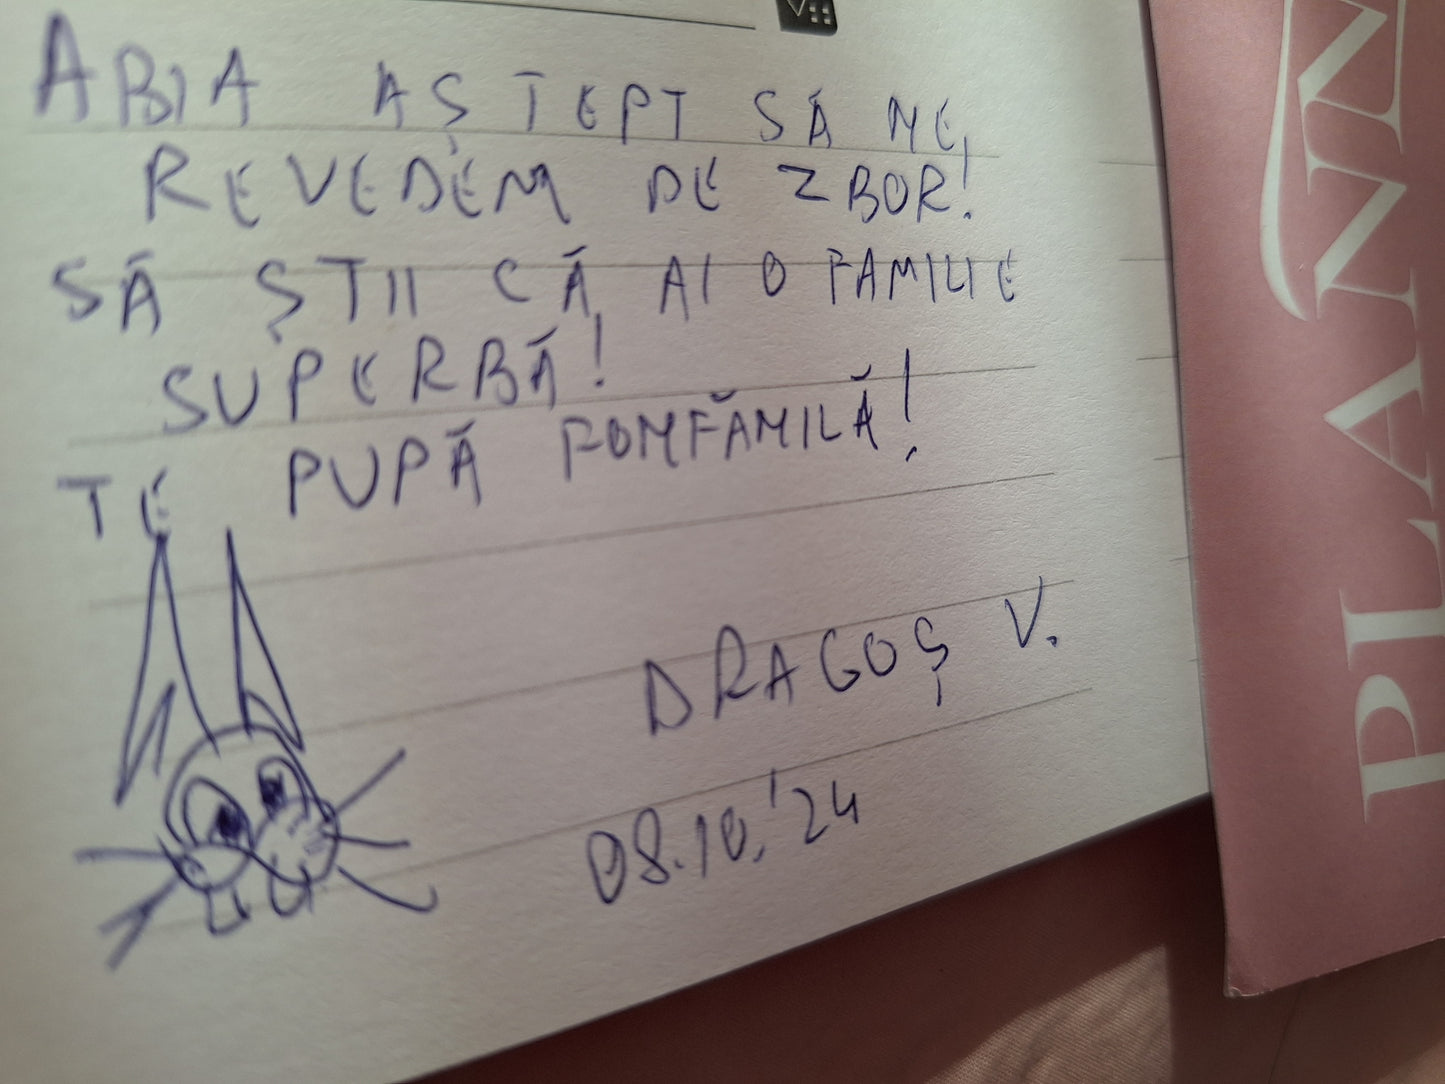 ABIA AȘTEPT SĂ NE
REVEDEM DE ZBOR!
SĂ ȘTII CĂ AI O FAMILIE
SUPERBĂ!
TE PUPĂ FOMFĂMILĂ!
DRAGOȘ V.
08.10.'24
PLANN